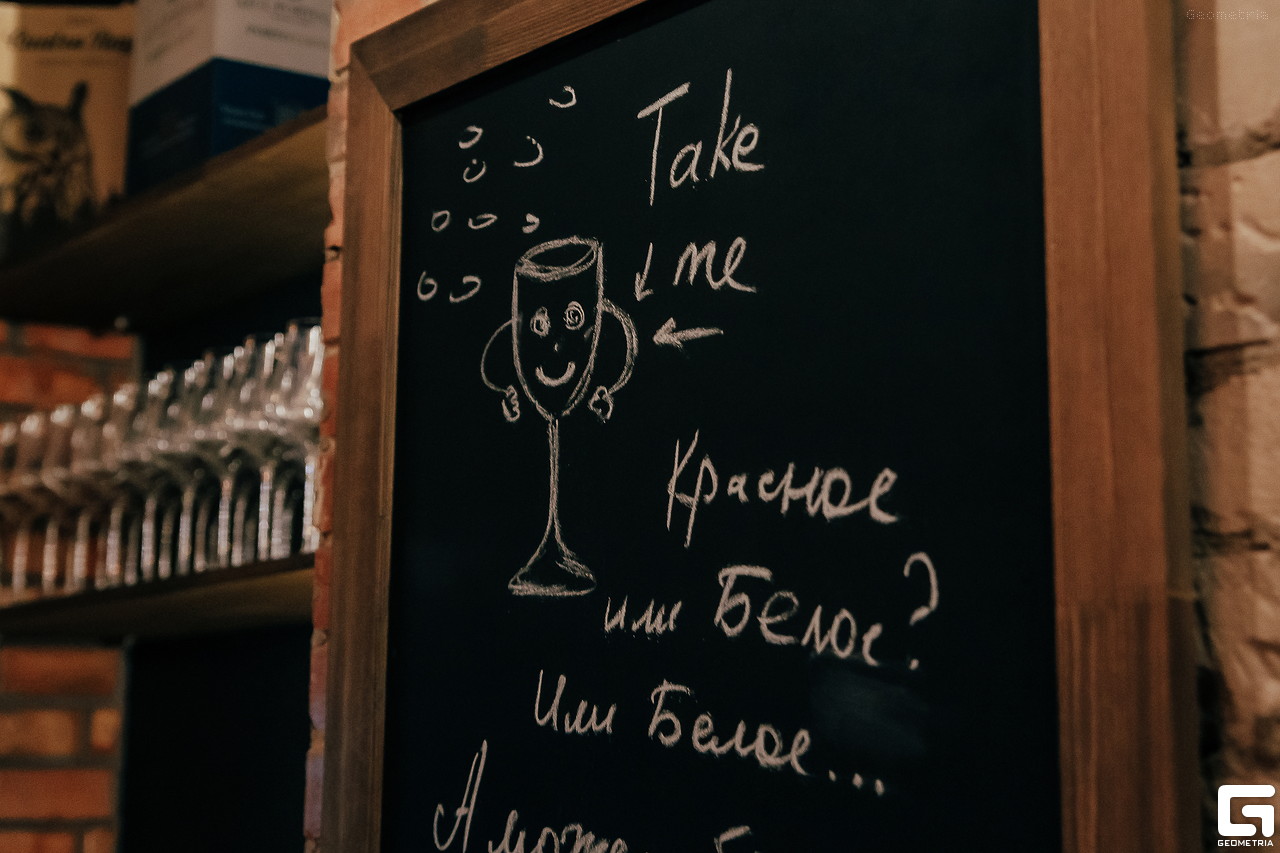 Geometria
Take
me
Красное
или Белое?
Или Белое...
А може
GEOMETRIA